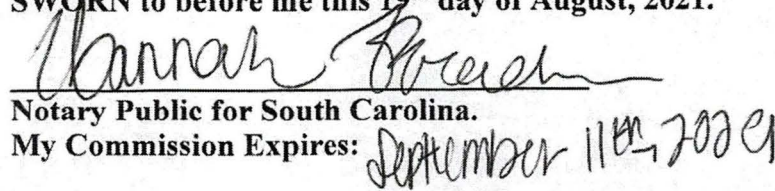 SWORN to before me this 19th day of August, 2021.
Hannah
Notary Public for South Carolina.
My Commission Expires: September 11th, 2029